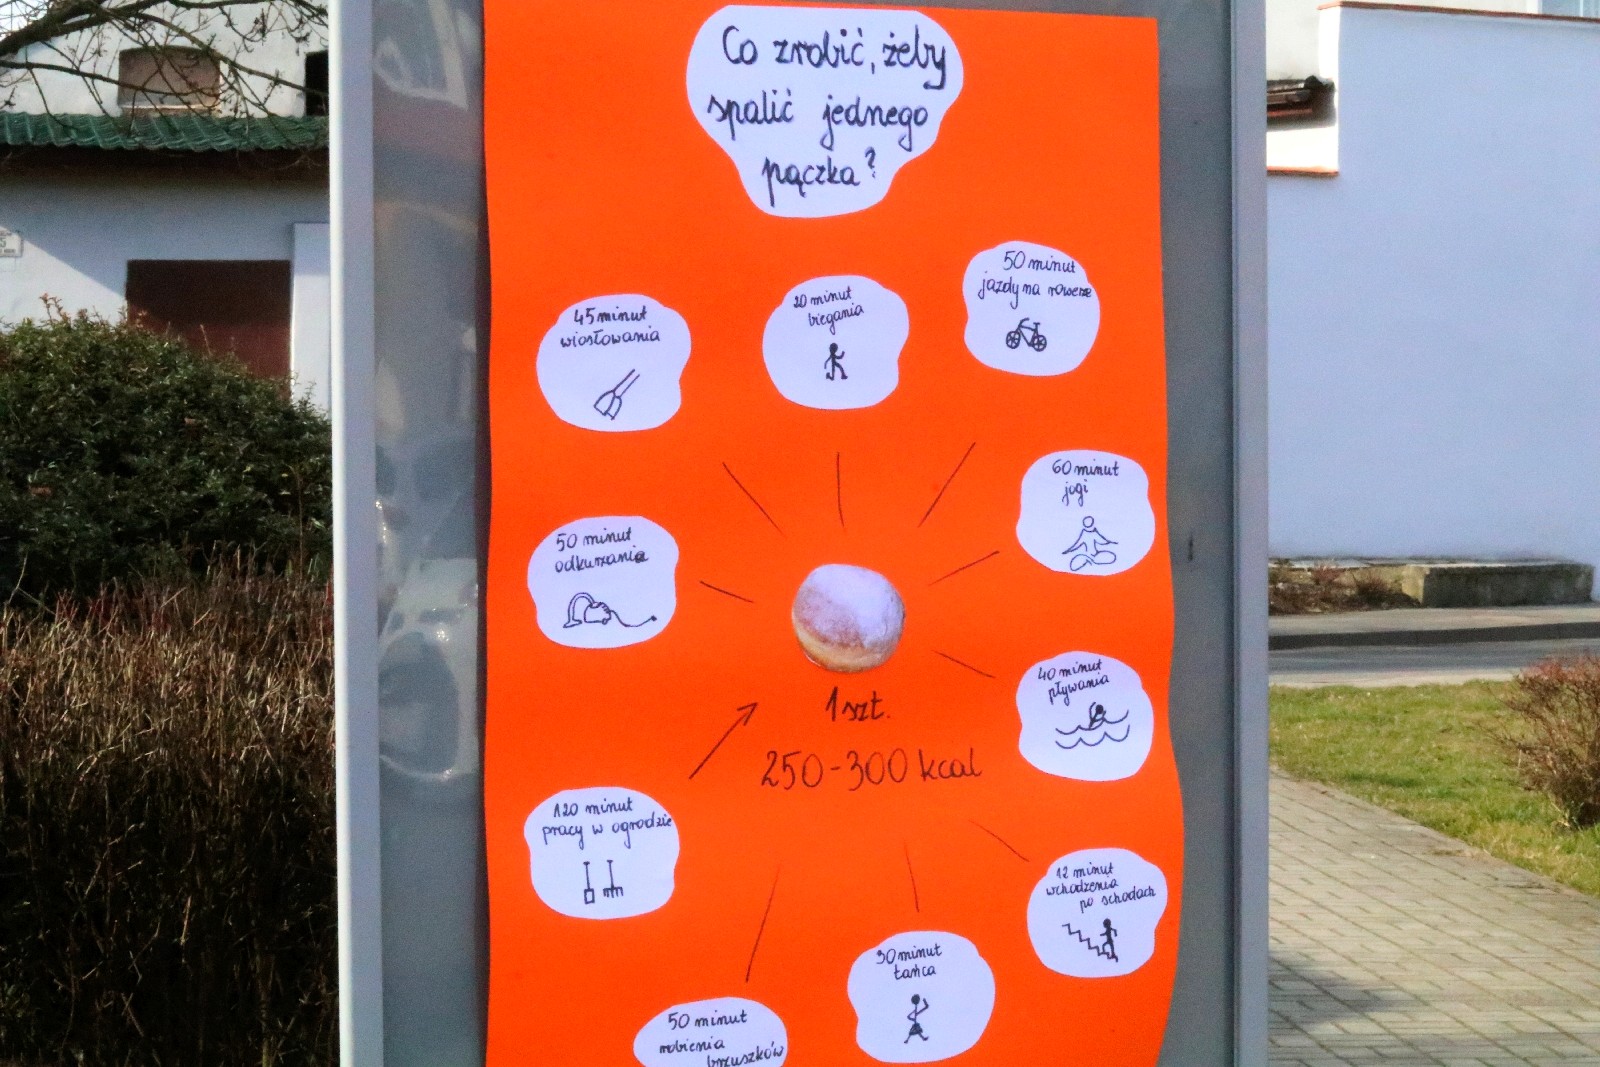 Co zrobić, żeby
spalić jednego
pączka?
45 minut
wiosłowania
20 minut
biegania
50 minut
jazdy na rowerze
60 minut
jogi
50 minut
odkurzania
40 minut
pływania
1 szt.
250-300 kcal
120 minut
pracy w ogrodzie
12 minut
wchodzenia
po schodach
30 minut
tańca
50 minut
robienia
brzuszków